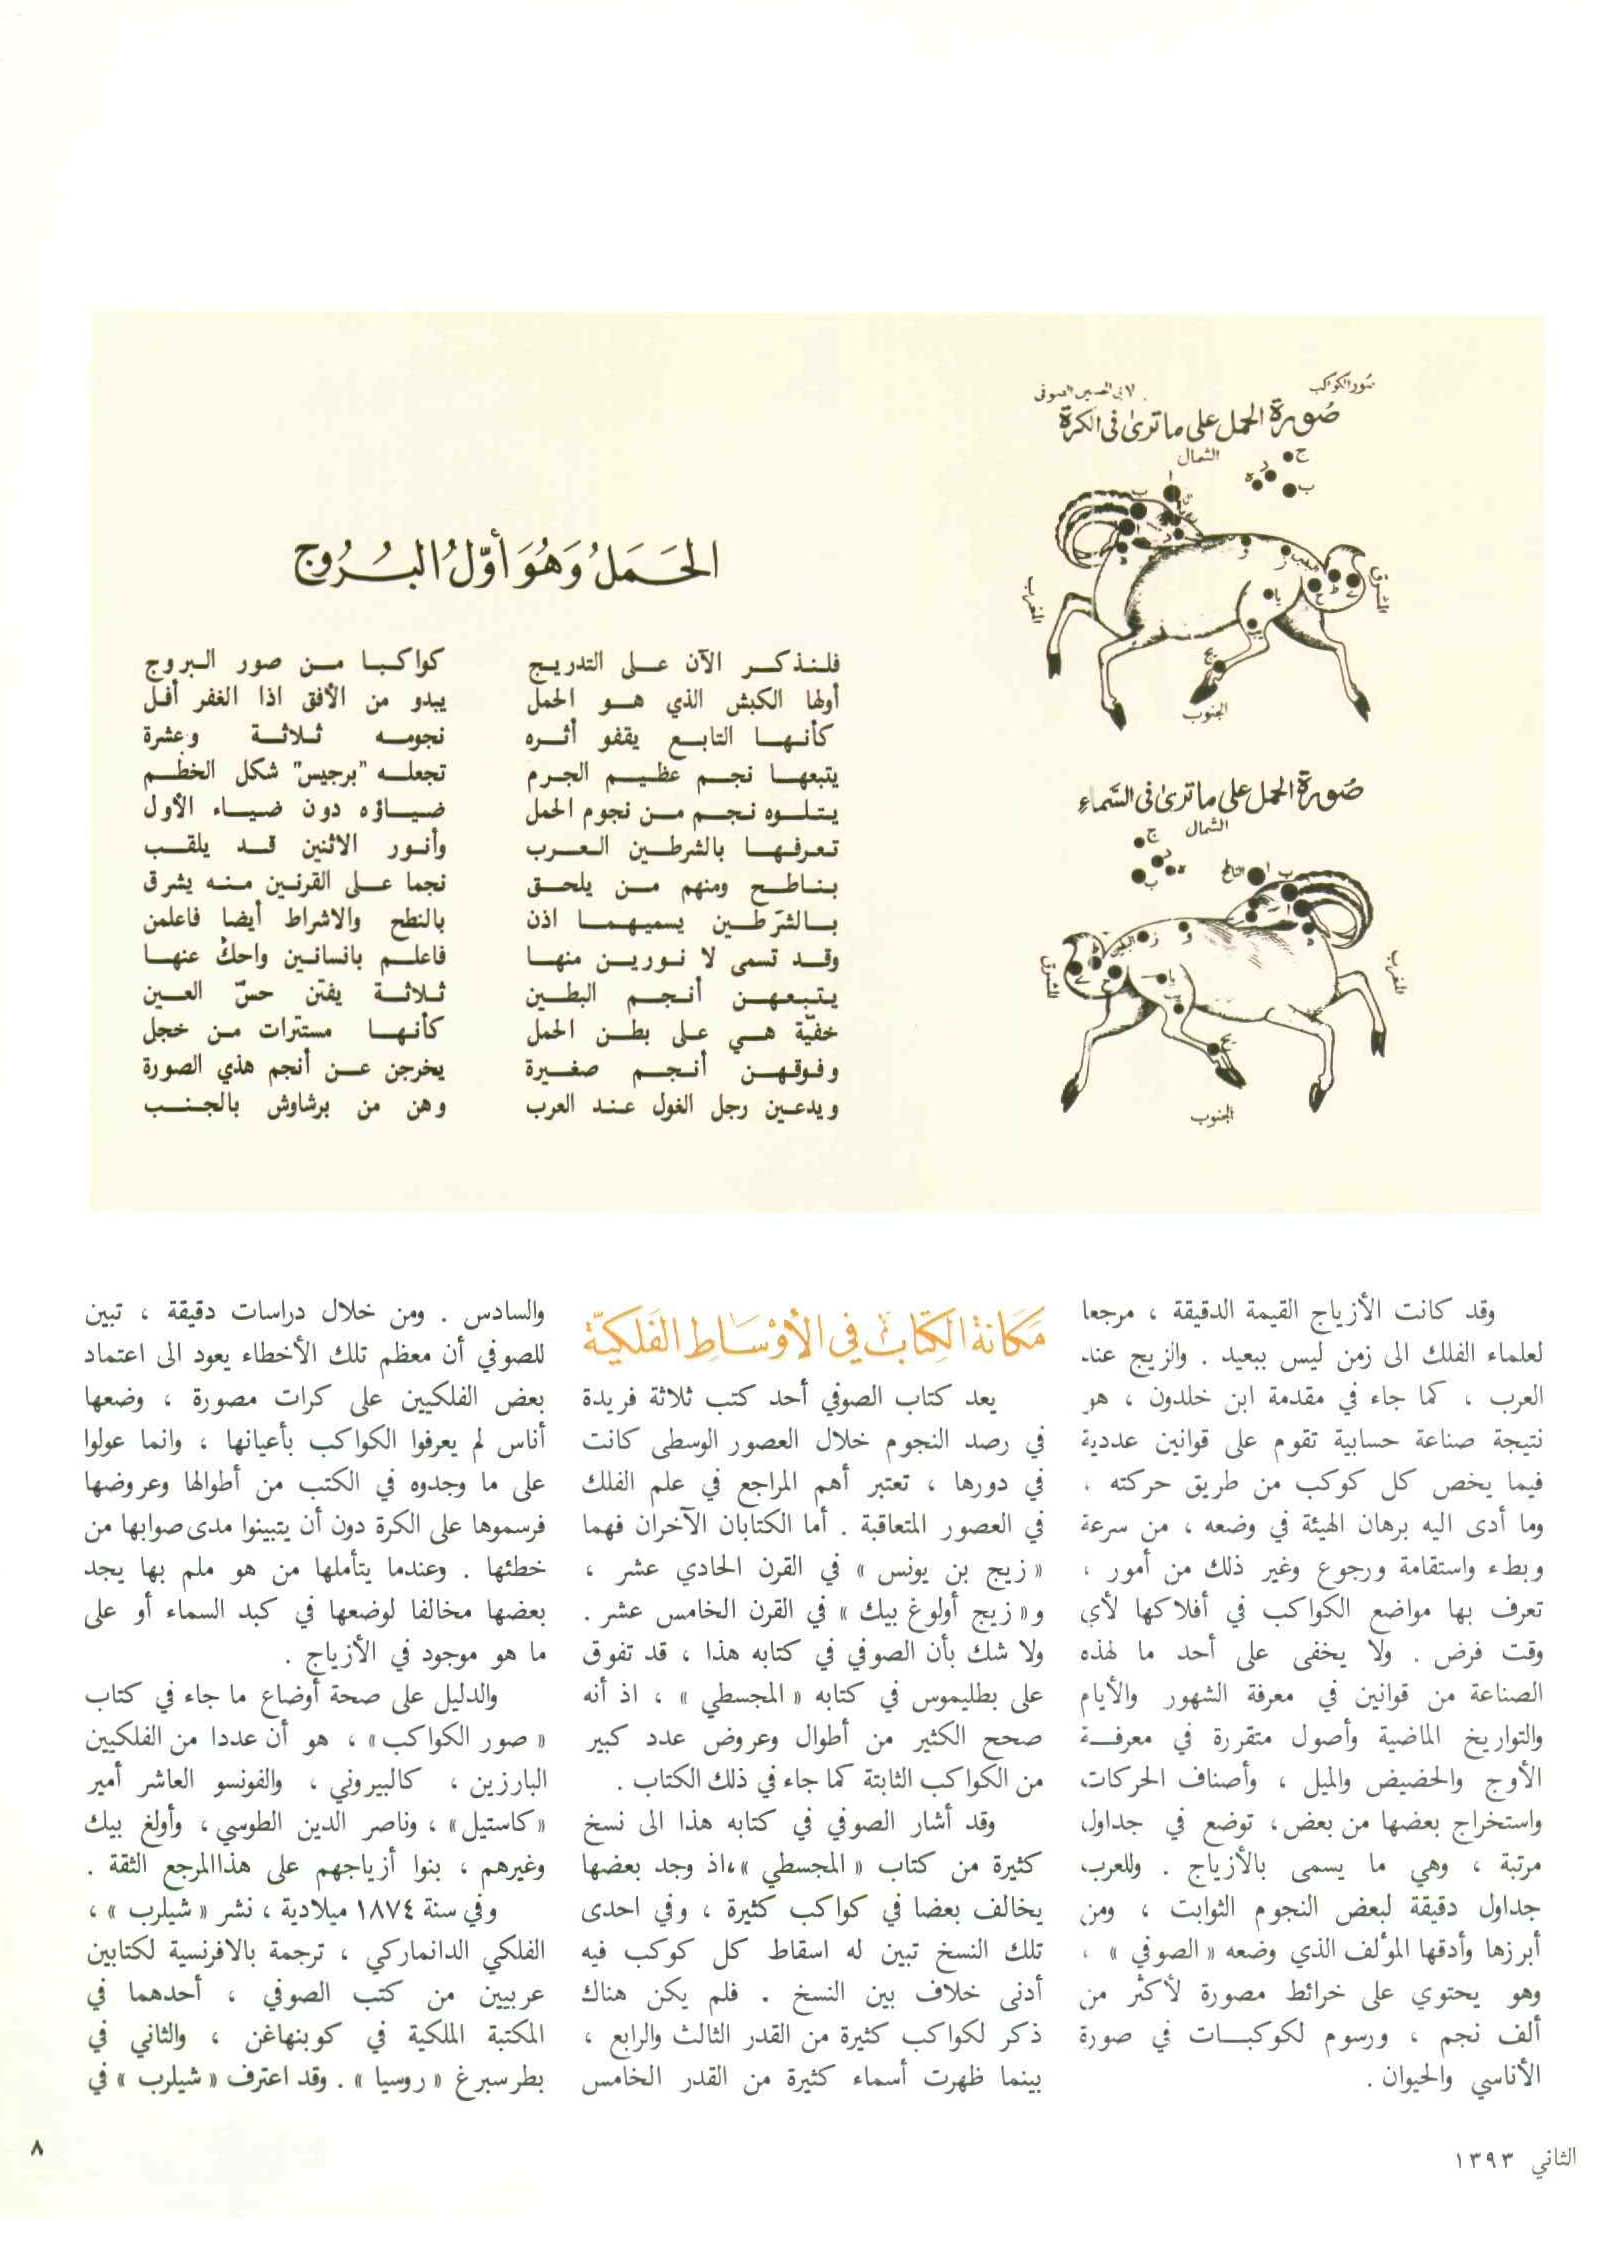 صور الكواكب
لابي الحسين الصوفي
صُورة الحمل على ما ترىٰ فى الكرة
الشمال
ج
د
ه
ب
المشرق
المغرب
الجنوب
صُورة الحمل على ما ترىٰ فى السَّماءِ
الشمال
ج
د
ه
ب
الناطح
المشرق
المغرب
الجنوب
الحَمَلُ وَهُوَ أوّلُ البُرُوج
فلنذكر الآن على التدريج كواكبا من صور البروج
أولها الكبش الذي هو الحمل يبدو من الأفق اذا الغفر أفل
كأنها التابع يقفو أثره نجومه ثلاثة وعشرة
يتبعها نجم عظيم الجرم تجعله "برجيس" شكل الخطم
يتلوه نجم من نجوم الحمل ضياؤه دون ضياء الأول
تعرفها بالشرطين العرب وأنور الاثنين قد يلقب
بناطح ومنهم من يلحق نجما على القرنين منه يشرق
بالشرّطين يسميهما اذن بالنطح والاشراط أيضا فاعلمن
وقد تسمى لا نورين منها فاعلم بانسانين واحكْ عنها
يتبعهن أنجم البطين ثلاثة يفتن حسّ العين
خفيّة هي على بطن الحمل كأنها مستترات من خجل
وفوقهن أنجم صغيرة يخرجن عن أنجم هذي الصورة
ويدعين رجل الغول عند العرب وهن من برشاوش بالجنب
وقد كانت الأزياج القيمة الدقيقة ، مرجعا
لعلماء الفلك الى زمن ليس ببعيد . والزيج عند
العرب ، كما جاء في مقدمة ابن خلدون ، هو
نتيجة صناعة حسابية تقوم على قوانين عددية
فيما يخص كل كوكب من طريق حركته ،
وما أدى اليه برهان الهيئة في وضعه ، من سرعة
وبطء واستقامة ورجوع وغير ذلك من أمور ،
تعرف بها مواضع الكواكب في أفلاكها لأي
وقت فرض . ولا يخفى على أحد ما لهذه
الصناعة من قوانين في معرفة الشهور والأيام
والتواريخ الماضية وأصول متقررة في معرفة
الأوج والحضيض والميل ، وأصناف الحركات
واستخراج بعضها من بعض، توضع في جداول
مرتبة ، وهي ما يسمى بالأزياج . وللعرب
جداول دقيقة لبعض النجوم الثوابت ، ومن
أبرزها وأدقها المؤلف الذي وضعه « الصوفي » ،
وهو يحتوي على خرائط مصورة لأكثر من
ألف نجم ، ورسوم لكوكبات في صورة
الأناسي والحيوان .
مَكَانة الكِتاب في الأوْسَاطِ الفَلكيّة
يعد كتاب الصوفي أحد كتب ثلاثة فريدة
في رصد النجوم خلال العصور الوسطى كانت
في دورها ، تعتبر أهم المراجع في علم الفلك
في العصور المتعاقبة . أما الكتابان الآخران فهما
« زيج بن يونس » في القرن الحادي عشر ،
و« زيج أولوغ بيك » في القرن الخامس عشر .
ولا شك بأن الصوفي في كتابه هذا ، قد تفوق
على بطليموس في كتابه « المجسطي » ، اذ أنه
صحح الكثير من أطوال وعروض عدد كبير
من الكواكب الثابتة كما جاء في ذلك الكتاب .
وقد أشار الصوفي في كتابه هذا الى نسخ
كثيرة من كتاب « المجسطي »،اذ وجد بعضها
يخالف بعضا في كواكب كثيرة ، وفي احدى
تلك النسخ تبين له اسقاط كل كوكب فيه
أدنى خلاف بين النسخ . فلم يكن هناك
ذكر لكواكب كثيرة من القدر الثالث والرابع ،
بينما ظهرت أسماء كثيرة من القدر الخامس
والسادس . ومن خلال دراسات دقيقة ، تبين
للصوفي أن معظم تلك الأخطاء يعود الى اعتماد
بعض الفلكيين على كرات مصورة ، وضعها
أناس لم يعرفوا الكواكب بأعيانها ، وانما عولوا
على ما وجدوه في الكتب من أطوالها وعروضها
فرسموها على الكرة دون أن يتبينوا مدى صوابها من
خطئها . وعندما يتأملها من هو ملم بها يجد
بعضها مخالفا لوضعها في كبد السماء أو على
ما هو موجود في الأزياج .
والدليل على صحة أوضاع ما جاء في كتاب
« صور الكواكب» ، هو أن عددا من الفلكيين
البارزين ، كالبيروني ، والفونسو العاشر أمير
«كاستيل» ، وناصر الدين الطوسي، وأولغ بيك
وغيرهم ، بنوا أزياجهم على هذاالمرجع الثقة .
وفي سنة ١٨٧٤ ميلادية ، نشر « شيلرب » ،
الفلكي الدانماركي ، ترجمة بالافرنسية لكتابين
عربيين من كتب الصوفي ، أحدهما في
المكتبة الملكية في كوبنهاغن ، والثاني في
بطرسبرغ « روسيا » . وقد اعترف « شيلرب » في
الثاني ١٣٩٣
٨